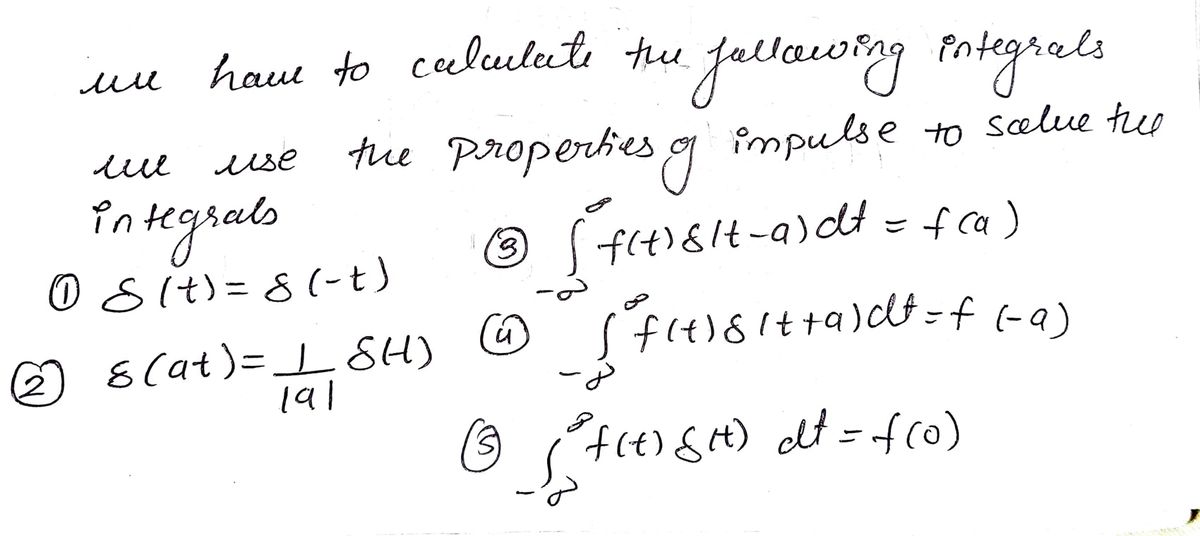 we have to calculate the following integrals
we use the properties of impulse to solve the
integrals
① δ(t) = δ(-t)
② δ(at) = 1/|a| δ(t)
③ ∫_{-∞}^{∞} f(t) δ(t-a) dt = f(a)
④ ∫_{-∞}^{∞} f(t) δ(t+a) dt = f(-a)
⑤ ∫_{-∞}^{∞} f(t) δ(t) dt = f(0)